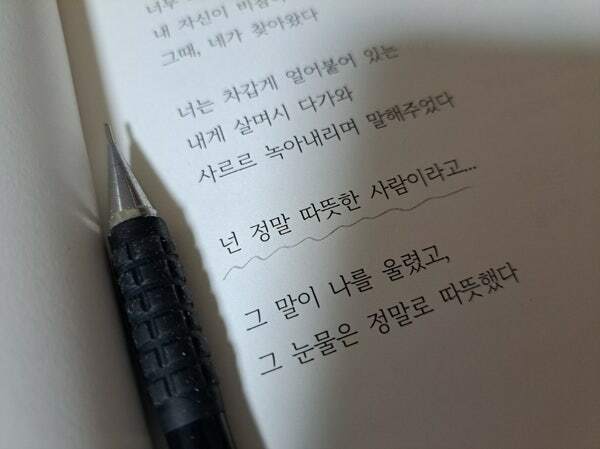 너무
내 자신이
그때, 네가 찾아왔다
너는 차갑게 얼어붙어 있는
내게 살며시 다가와
사르르 녹아내리며 말해주었다
넌 정말 따뜻한 사람이라고...
그 말이 나를 울렸고,
그 눈물은 정말로 따뜻했다